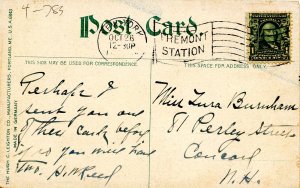 4-785
Post Card
OCT 26
12-30P
FREMONT
STATION
THIS SIDE MAY BE USED FOR CORRESPONDENCE.
THIS SPACE FOR ADDRESS ONLY.
THE HUGH C. LEIGHTON CO., MANUFACTURERS, PORTLAND, ME., U.S.A.
MADE IN GERMANY
Perhaps I
sent you one
these cards before
if so you must have
two.
Miss Zura Burnham
81 Perley Street
Concord
N.H.